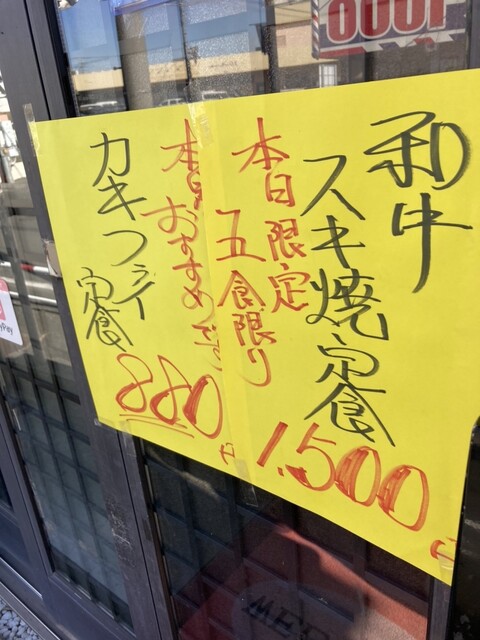 和牛
スキ焼定食
1.500円
本日限定
五食限り
本日おすすめです
カキフライ
定食
880円
OPEN